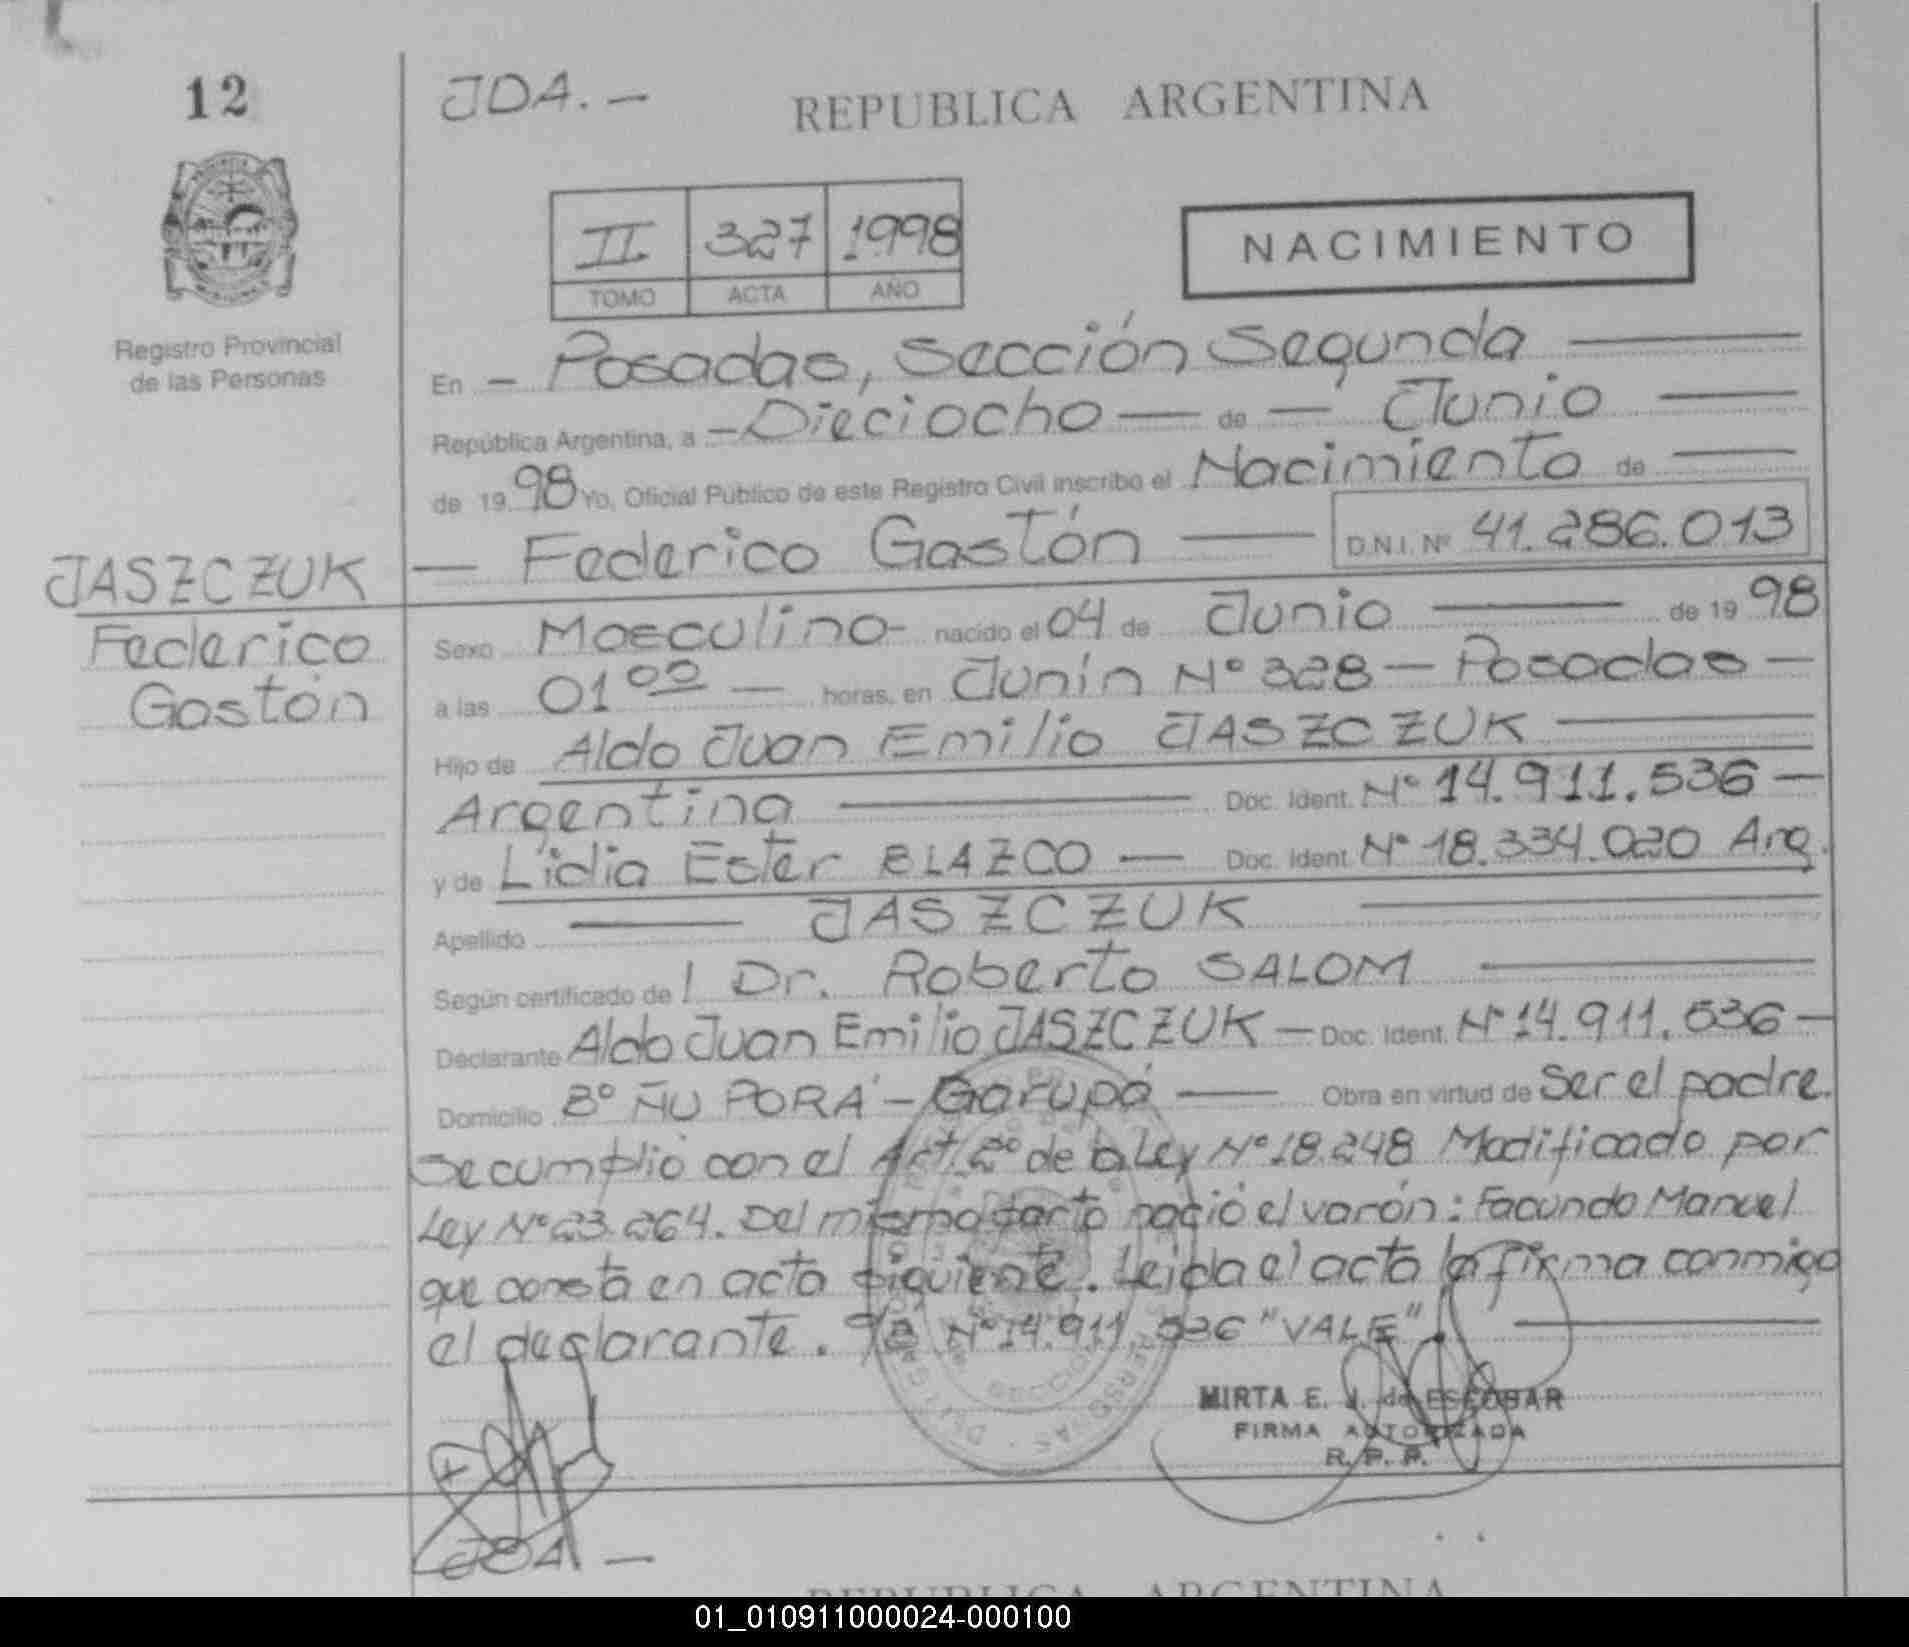 12
JDA. —
REPUBLICA ARGENTINA
II 327 1998
TOMO ACTA AÑO
NACIMIENTO
Registro Provincial
de las Personas
En — Posadas, Sección Segunda —
República Argentina, a — Dieciocho — de — Junio —
de 19 98 Yo, Oficial Público de este Registro Civil inscribo el Nacimiento de —
— Federico Gastón — D.N.I. Nº 41.286.013
JASZCZUK
Federico
Gastón
Sexo Masculino - nacido el 04 de Junio — de 19 98
a las 01 00 — horas, en Junín Nº 328 — Posadas —
Hijo de Aldo Juan Emilio JASZCZUK —
Argentina — Doc. Ident. Nº 14.911.536 —
y de Lidia Ester BLAZCO — Doc. Ident. Nº 18.334.020 Arg.
Apellido — JASZCZUK —
Según certificado de l Dr. Roberto SALOM —
Declarante Aldo Juan Emilio JASZCZUK — Doc. Ident. Nº 14.911.536 —
Domicilio Bº ÑU PORÁ — Garupá — Obra en virtud de Ser el padre.
Se cumplió con el Art. 2º de la Ley Nº 18.248 Modificado por
Ley Nº 23.264. Del mismo parto nació el varón: Facundo Manuel
que consta en acta siguiente. Leida el acta la firma conmigo
el declarante. Nº 14.911.536 "VALE". —
MIRTA E. J. de ESCOBAR
FIRMA AUTORIZADA
R. P. P.
JDA —
REPUBLICA ARGENTINA
01_010911000024-000100